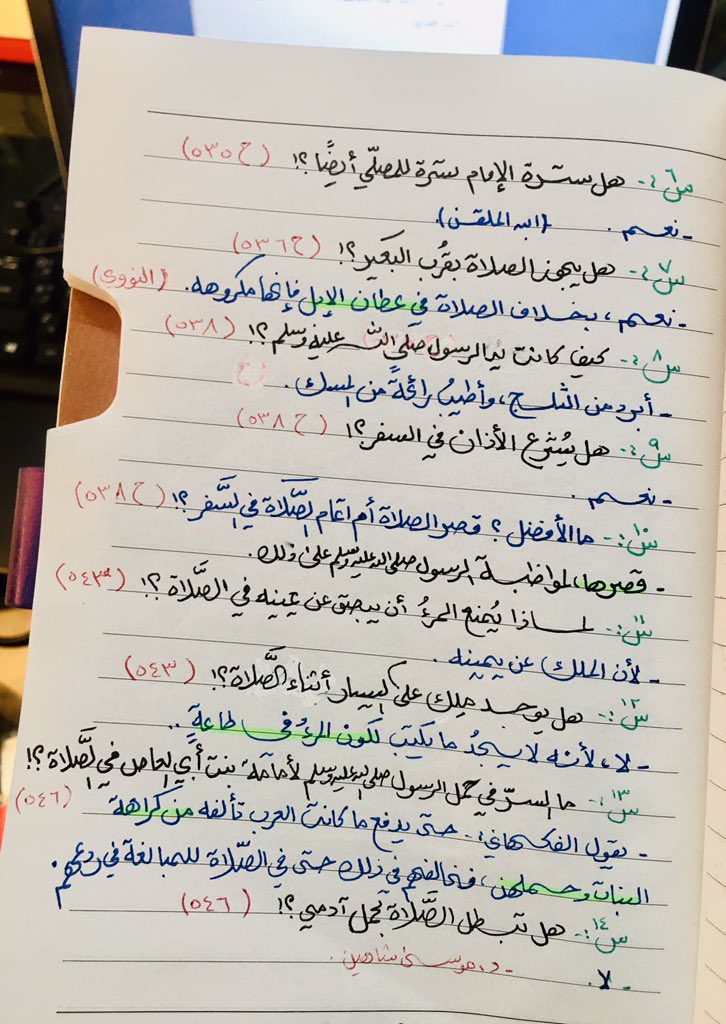 س٦:- هل سترة الإمام سترة للمصلّي أيضًا؟! (ح ٥٣٥)
- نعم. (ابن الملقن).
س٧:- هل يجوز الصلاة بقُرب البعير؟! (ح ٥٣٦)
- نعم، بخلاف الصلاة في عطان الإبل فإنها مكروهه. (النووي)
س٨:- كيف كانت يد الرسول صلى الله عليه وسلم؟! (٥٣٨)
- أبرد من الثلج، وأطيبُ رائحةً من المسك.
س٩:- هل يُشرع الأذان في السفر؟! (ح ٥٣٨)
- نعم.
س١٠:- ما الأفضل؟ قصر الصلاة أم اتمام الصَّلاة في السَّفر؟! (ح ٥٣٨)
- قصرها، لمواظبة الرسول صلى الله عليه وسلم على ذلك.
س١١:- لماذا يُمنع المرءُ أن يبصق عن يمينه في الصَّلاة؟! (٥٤٣)
- لأن الملك عن يمينه.
س١٢:- هل يوجد ملك على اليسار أثناء الصَّلاة؟! (٥٤٣)
- لا، لأنه لا يجدُ ما يكتب لكون المرءُ في طاعةٍ..
س١٣:- ما السرّ في حمل الرسول صلى الله عليه وسلم لأمامة بنت أبي العاص في الصَّلاة؟!
- يقول الفكهاني:- حتى يدفع ما كانت العرب تألفه من كراهة (٥٤٦)
البنات وحملهن، فخالفهم في ذلك حتى في الصّلاة للمبالغة في ردعهم.
س١٤:- هل تبطل الصَّلاة بحمل آدمي؟! (٥٤٦)
- لا. - د. موسى شاهين.